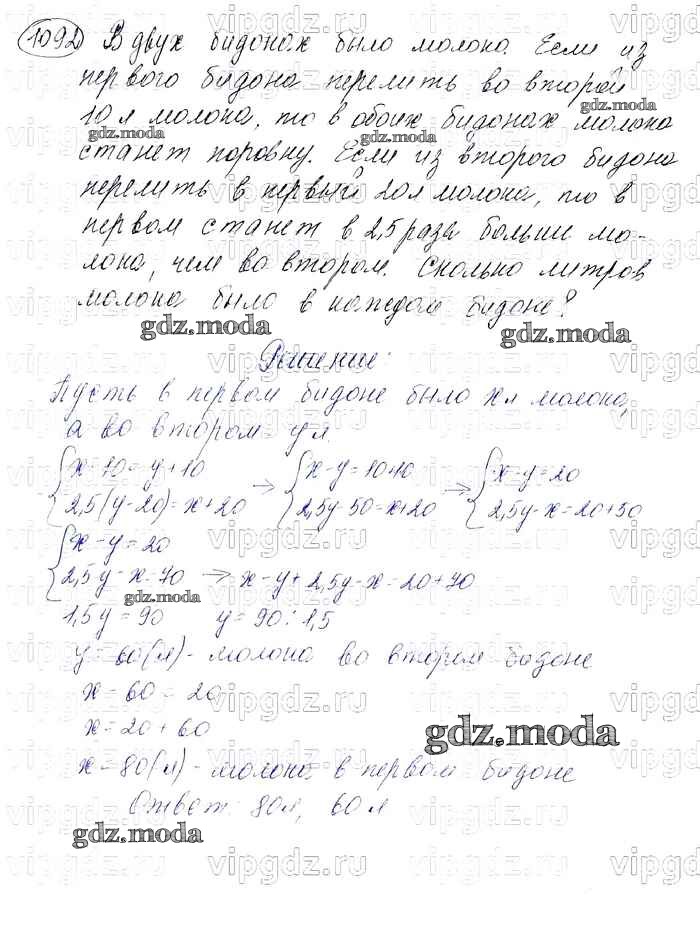 1092) В двух бидонах было молоко. Если из
первого бидона перелить во второй
10 л молока, то в обоих бидонах молока
станет поровну. Если из второго бидона
перелить в первый 20 л молока, то в
первом станет в 2,5 раза больше мо-
лока, чем во втором. Сколько литров
молока было в каждом бидоне?
Решение:
Пусть в первом бидоне было x л молока,
а во втором - y л.
{x-10=y+10 → {x-y=10+10 → {x-y=20
{2,5(y-20)=x+20 {2,5y-50=x+20 {2,5y-x=20+50
{x-y=20
{2,5y-x=70 → x-y+2,5y-x=20+70
1,5y=90 y=90:1,5
y=60(л) - молока во втором бидоне
x-60=20
x=20+60
x=80(л) - молока в первом бидоне
Ответ: 80 л, 60 л
gdz.moda
gdz.moda
gdz.moda
gdz.moda
gdz.moda
gdz.moda
gdz.moda
vipgdz.ru